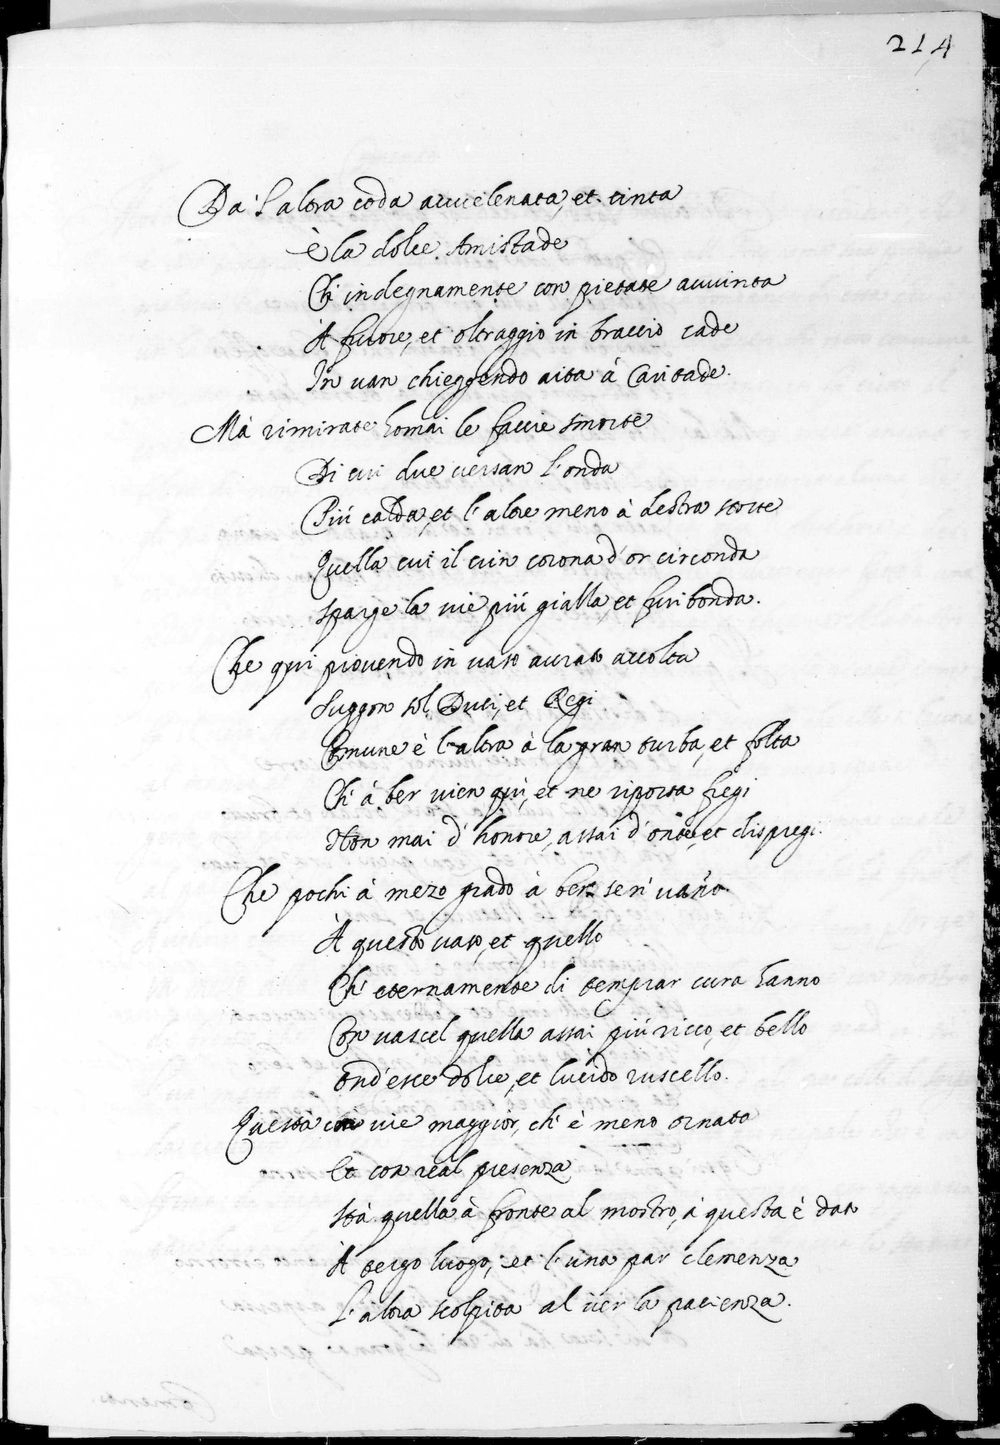 214
Da' l'altra coda auuelenata, et tinta
è la dolce Amistade
Ch' indegnamente con pietate auuinta
A furore, et oltraggio in braccio cade
In uan chieggendo aita à Caritade.
Mà rimirate homai le faccie smorte
Di cui due uersan l'onda
Più calda, et l'altre meno à destra storte
Quella cui il crin corona d'or circonda
Sparge la uie più gialla, et furibonda.
Che qui piouendo in uaso aurato accolta
Suggon sol Duci, et Regi
Comune è l'altra à la gran turba, et folta
Ch' à ber uien qui, et ne riporta fregi
Non mai d'honore, assai d'onte, et dispregi.
Che pochi à mezo grado à ber sen' uanno
A questo uaso, et quello
Ch' eternamente di temprar cura hanno
Con uascel quella assai più ricco, et bello
ond'esce dolce, et lucido ruscello.
Questa con uie maggior, ch' è meno ornato
Et con real presenza
Stà quella à fronte al mostro, à questa è dato
A tergo luogo, et l'una par clemenza
L'altra scolpita al uer la pacienza.